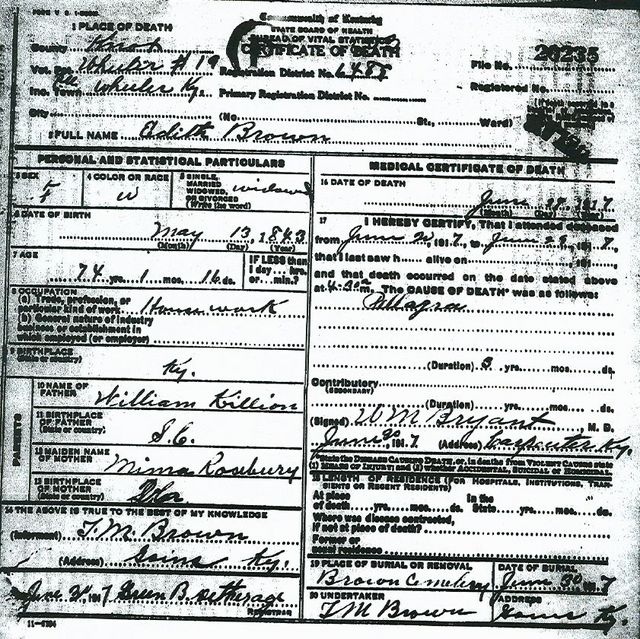 Commonwealth of Kentucky
STATE BOARD OF HEALTH
BUREAU OF VITAL STATISTICS
CERTIFICATE OF DEATH
1 PLACE OF DEATH
County Knox
Vot. Pct. Wheeler #19 Registration District No. 6488
File No. 20235
Inc. Town Wheeler Ky. Primary Registration District No.
Registered No.
City (No. St., Ward)
2 FULL NAME Edith Brown
PERSONAL AND STATISTICAL PARTICULARS
3 SEX F
4 COLOR OR RACE W
5 SINGLE, MARRIED WIDOWED, OR DIVORCED (Write the word) widowed
6 DATE OF BIRTH
May 13, 1843
(Month) (Day) (Year)
7 AGE
74 yrs. 1 mos. 16 ds.
IF LESS than 1 day... hrs. or... min.?
8 OCCUPATION
(a) Trade, profession, or particular kind of work House work
(b) General nature of industry business or establishment in which employed (or employer)
9 BIRTHPLACE
(State or country) Ky.
PARENTS
10 NAME OF FATHER William Killion
11 BIRTHPLACE OF FATHER (State or country) S.C.
12 MAIDEN NAME OF MOTHER Mima Rosebury
13 BIRTHPLACE OF MOTHER (State or country)
14 THE ABOVE IS TRUE TO THE BEST OF MY KNOWLEDGE
(Informant) T.M. Brown
(Address) Ky.
June 1917 Green B.
REGISTRAR
11-6184
MEDICAL CERTIFICATE OF DEATH
16 DATE OF DEATH
June 1917
(Month) (Day) (Year)
17 I HEREBY CERTIFY, That I attended deceased
from June 1917, to June 1917,
that I last saw h... alive on 191
and that death occurred on the date stated above
at 4-30 m. The CAUSE OF DEATH was as follows:
Pellagra
(Duration) 3 yrs. mos. ds.
Contributory
(SECONDARY)
(Duration) yrs. mos. ds.
(Signed) W M Bryant M. D.
June 1917 (Address) Carpenter Ky.
State the DISEASE CAUSING DEATH, or, in deaths from VIOLENT CAUSES state
(1) MEANS OF INJURY; and (2) whether ACCIDENTAL, SUICIDAL or HOMICIDAL
18 LENGTH OF RESIDENCE (FOR HOSPITALS, INSTITUTIONS, TRANSIENTS OR RECENT RESIDENTS)
At place of death yrs. mos. ds. In the State yrs. mos. ds.
Where was disease contracted, if not at place of death?
Former or usual residence
19 PLACE OF BURIAL OR REMOVAL
Brown Cemetery
DATE OF BURIAL
June 30 1917
20 UNDERTAKER
T M Brown
ADDRESS
Ky.